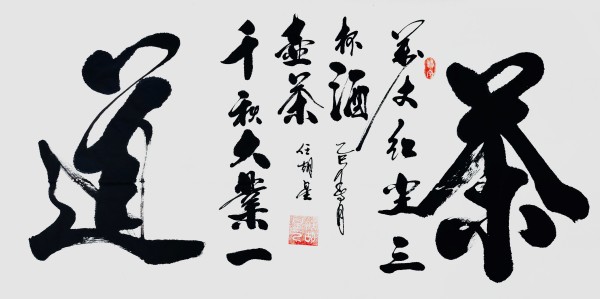 茶
道
萬丈红尘三
杯酒
千秋大業一
壺茶
乙巳年春月
任胡星